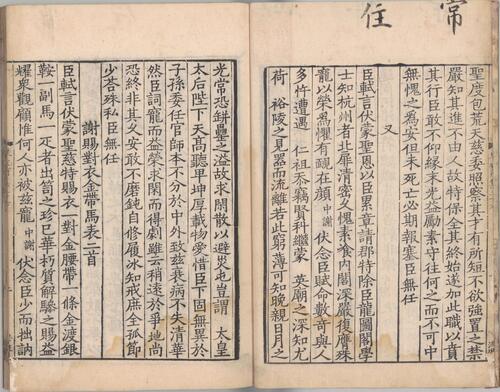 常住
聖度包荒天慈委照察其才有所短不欲強置之禁
嚴知其進不由人故特保全其終始遂加此職以賁
其行臣敢不仰緣末光益勵素守往何之而不可中
無愧之為安但未死亡必期報塞臣無任
又
臣軾言伏蒙聖恩以臣累章請郡特除臣龍圖閣學
士知杭州者北扉清密又愧素食內閣深嚴復膺殊
寵以榮為懼有靦在顏中謝伏念臣賦命數奇與人
多忤遭遇 仁祖忝竊賢科繼蒙 英廟之深知尤
荷 裕陵之見器而流離若此窮薄可知晚親日月之
光常恐缾罍之溢故求閑散以避災屯豈謂 太皇
太后陛下天髙聽早坤厚載物愛惜臣下固無異於
子孫委任官師本不分於中外致兹衰病不失清華
然臣詞寵而益榮求閑而得劇雖云稍遠於爭地尚
恐終非其久安敢不磨鈍自修履冰知戒庶全孤節
少荅殊私臣無任
謝賜對衣金帶馬表二首
臣軾言伏蒙聖慈特賜衣一對金腰帶一條金渡銀
鞍一副馬一疋者出笥之珍已華朽質解驂之賜益
耀衆觀顧惟何人亦被兹寵中謝伏念臣少而拙訥